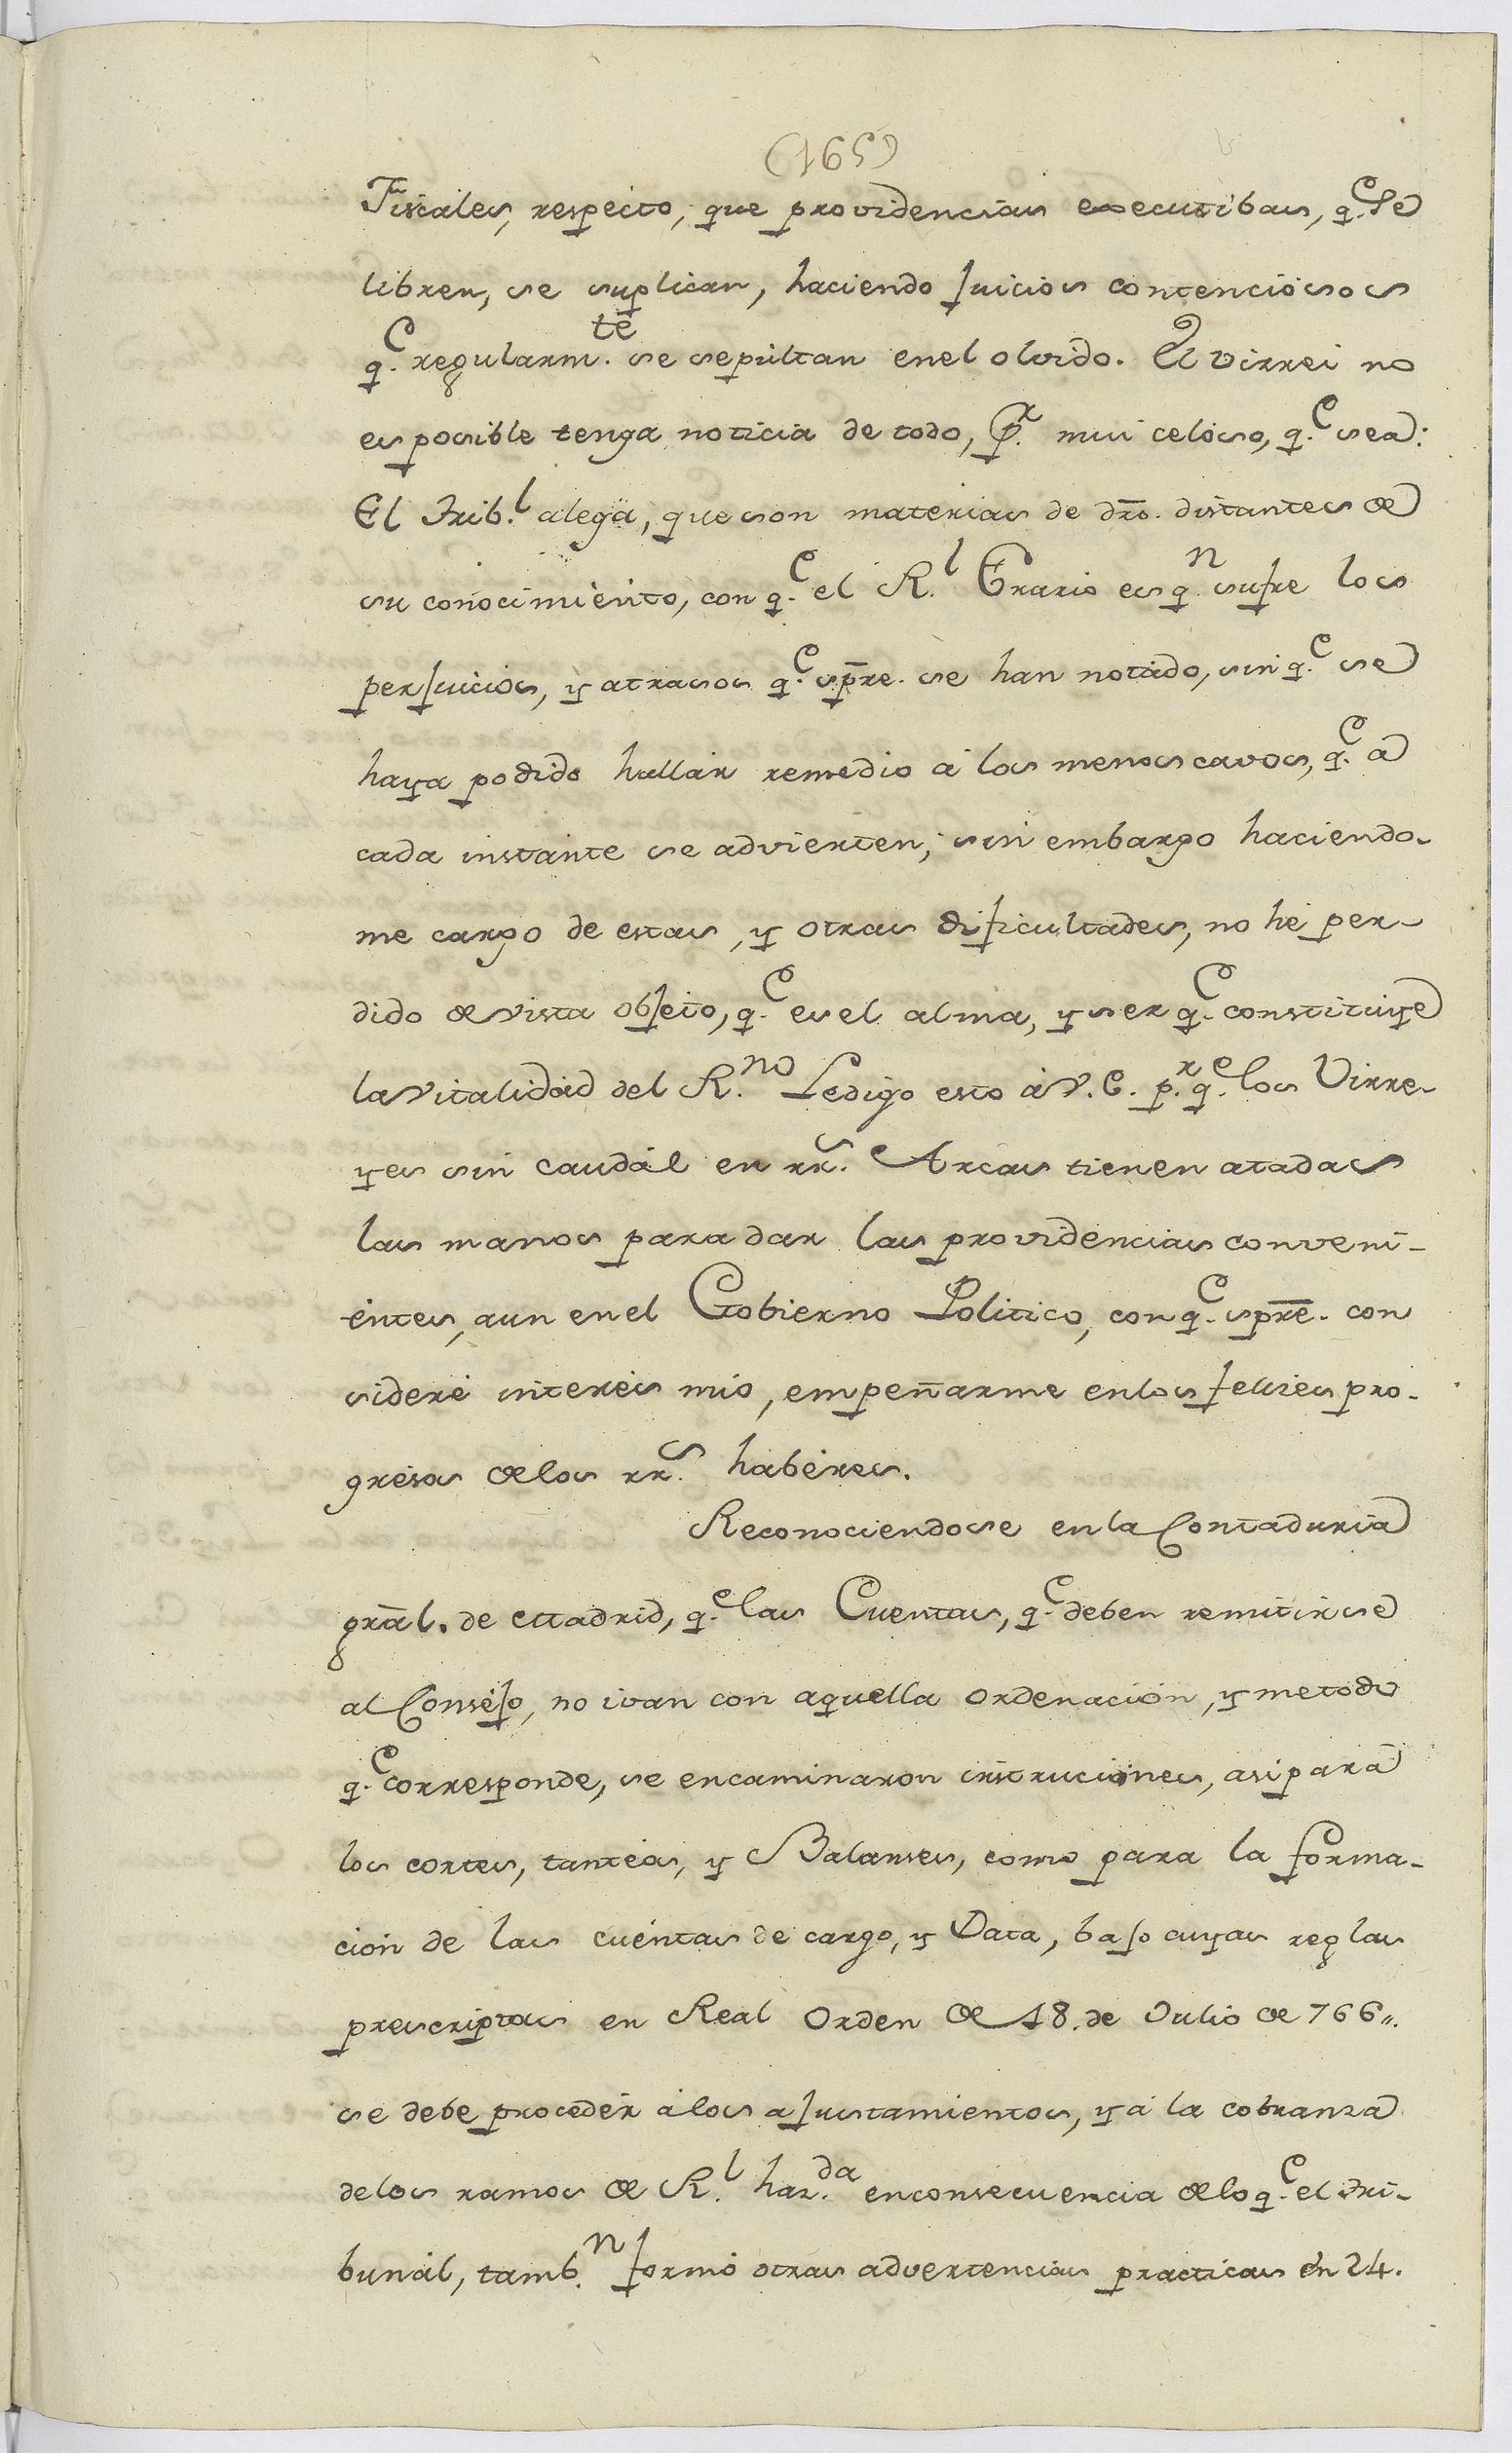 (165)
Fiscales, respecto, que providencias executibas, q.e se
libren, se suplican, haciendo juicios contenciosos
q.e regularm.te se sepultan enel olvido. El virrei no
es posible tenga noticia de todo, p.r mui celoso, q.e sea:
El Trib.l alega, que son materias de dro. distantes de
su conocimiento, con q.e el R.l Erario es q.n sufre los
perjuicios, y atrasos q.e spre. se han notado, sin q.e se
haya podido hallar remedio à los menoscavos, q.e a
cada instante se advierten; sin embargo haciendo-
me cargo de estas, y otras dificultades, no hè per-
dido de vista objeto, q.e es el alma, y ser q.e constituye
la vitalidad del R.no Ledigo esto à V. E. p.r q.e los Virre-
yes sin caudàl en rr.s Arcas tienen atadas
las manos para dar las providencias conveni-
entes, aun enel Gobierno Politico, con q.e spre. con
siderè interès mio, empeñarme enlos felices pro-
gresos delos rr.s habères.
Reconociendose en la Contaduria
gral. de Madrid, q.e las Cuentas, q.e deben remitirse
al Consejo, no ivan con aquella ordenaciòn, y metodo
q.e corresponde, se encaminaron instruciones, asi para
los cortes, tanteos, y Balanses, como para la forma-
ciòn de las cuentas de cargo, y Data, bajo cuyas reglas
prescriptas en Real Orden de 18. de Julio de 766,,
se debe procedèr à los ajustamientos, y à la cobranza
delos ramos de R.l haz.da en consecuencia de lo q.e el Tri-
bunàl, tamb.n formò otras advertencias practicas en 24.